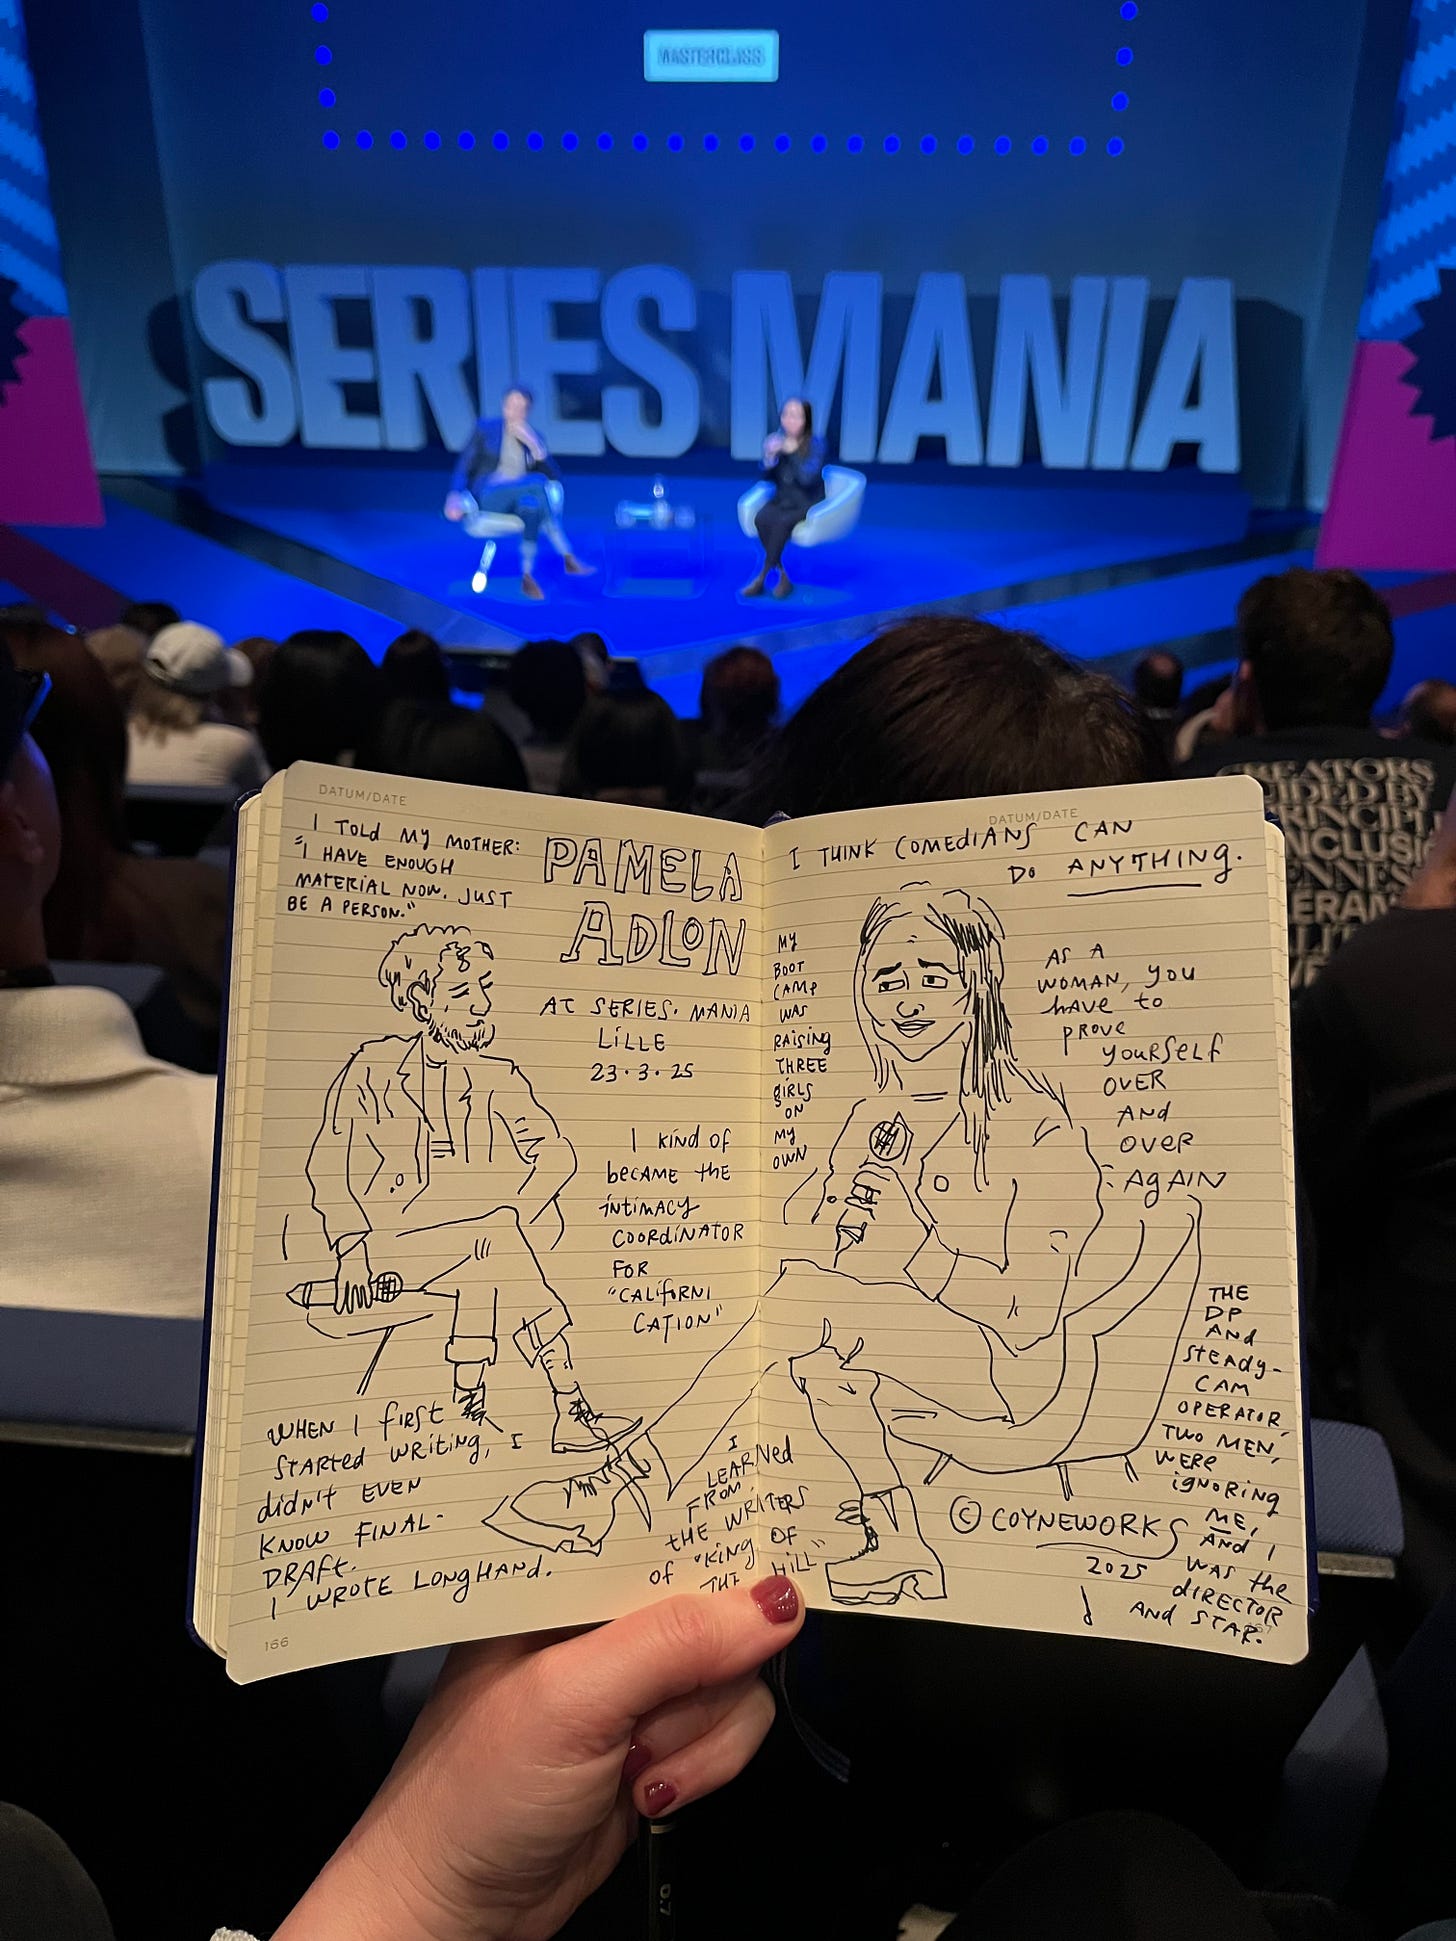 MASTERCLASS
SERIES MANIA
CREATORS
INCLUSI
DATUM/DATE
I TOLD MY MOTHER:
"I HAVE ENOUGH
MATERIAL NOW. JUST
BE A PERSON."
PAMELA
ADLON
AT SERIES·MANIA
LiLLE
23·3·25
I kiNd of
becAME the
iNtiMACy
COORdiNATOR
FOR
"CALifORNi
CATioN"
WHEN I fiRSt
StARted WRitiNg, I
didN't EVEN
KNOW FINAL-
DRAft.
I WROTE LONgHANd.
I
LEARNed
FROM
tHE WRiTERS
of "KiNg OF
THE HiLL"
166
DATUM/DATE
I THINK COMEdiANS CAN
Do ANYTHiNG.
My
BOOT
CAMP
WAS
RAiSiNg
THREE
giRLS
ON
My
OWN
AS A
WOMAN, you
have to
pROVE
yOURSElf
OVER
ANd
OVER
AgAiN
THE
DP
ANd
StEAdy-
CAM
OPERATOR,
TWO MEN,
WERE
igNORiNg
ME,
ANd I
WAS the
diRECTOR
ANd STAR.
© COYNEWORKS
2025
0.7